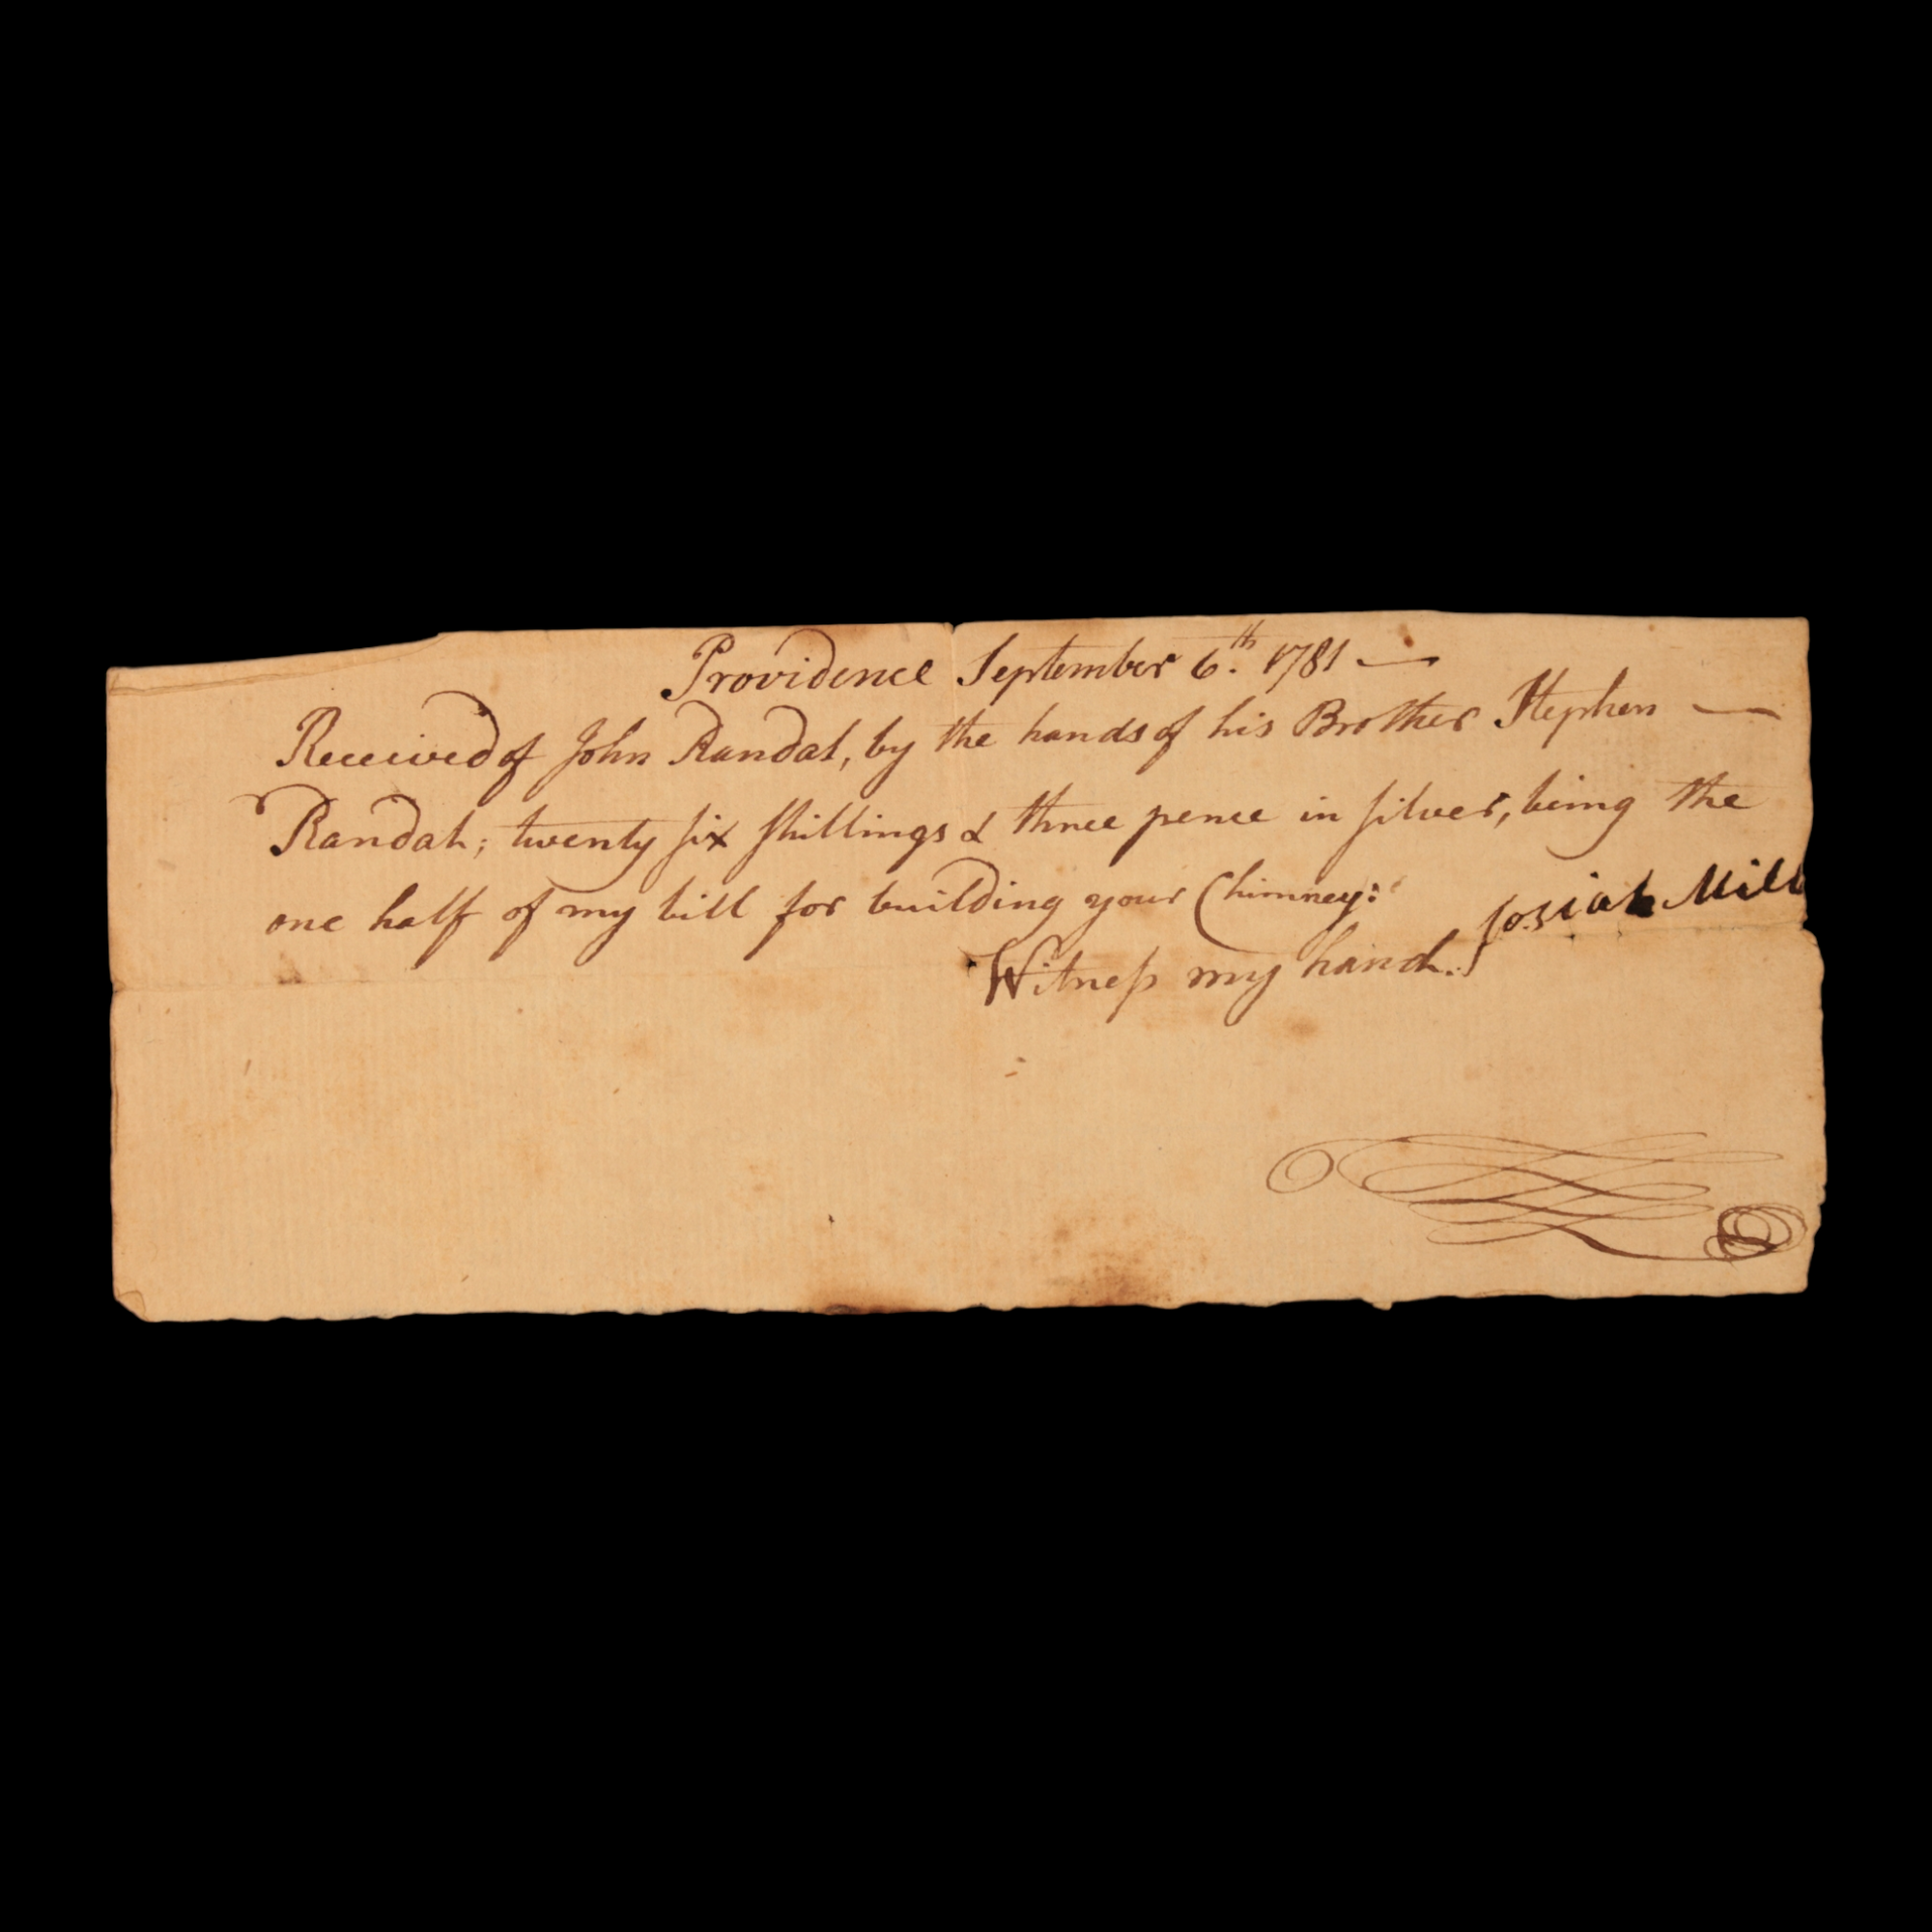 Providence September 6.th 1781 —
Received of John Randal, by the hands of his Brother Stephen —
Randal; twenty six shillings & three pence in silver, being the
one half of my bill for building your Chimney:
Witness my hand.} Josiah Mill